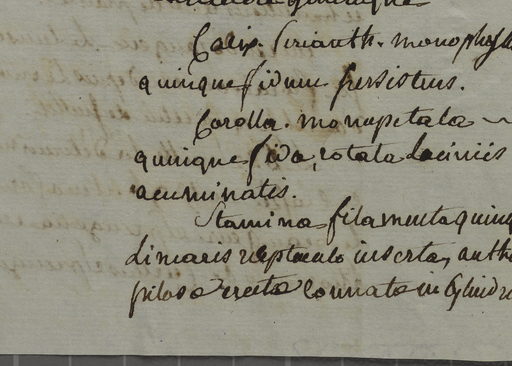 Calix. Perianth. monophyll
quinquefidum persistens.
Corolla. monopetala
quinquefida, rotata laciniis
acuminatis.
Stamina filamenta quinq
linearis receptaculo inserta, anthe
pilosa erecta connata in Cylindr